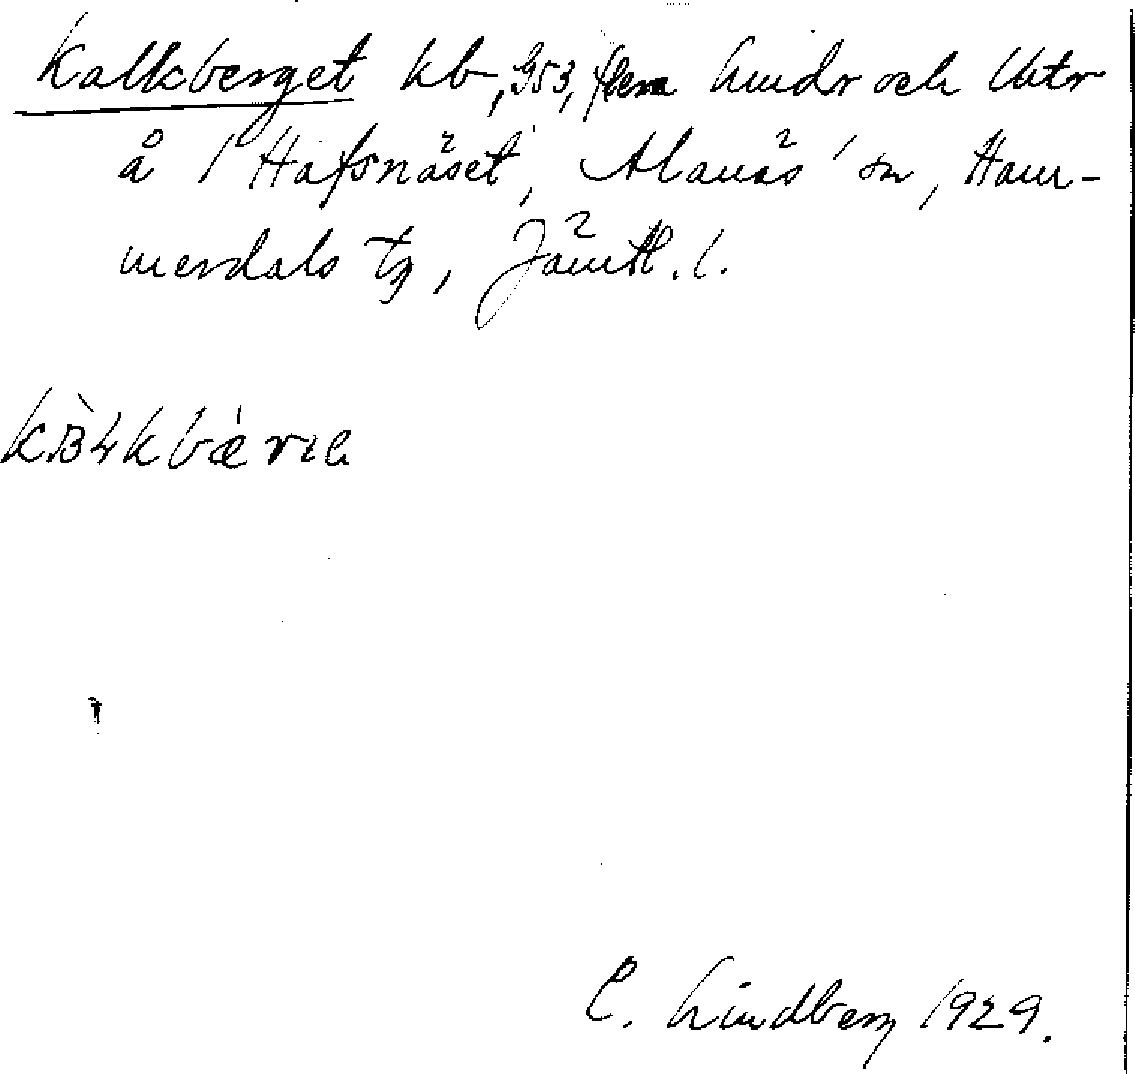 Kalkberget kb, 953, flera lindr och Utr
å 1 Hafsnäset, Alanäs sn, Ham-
merdals tg, Jämtl. l.
kɒ̀ɬkbæ̀ rɩa
C. Lindberg 1929.